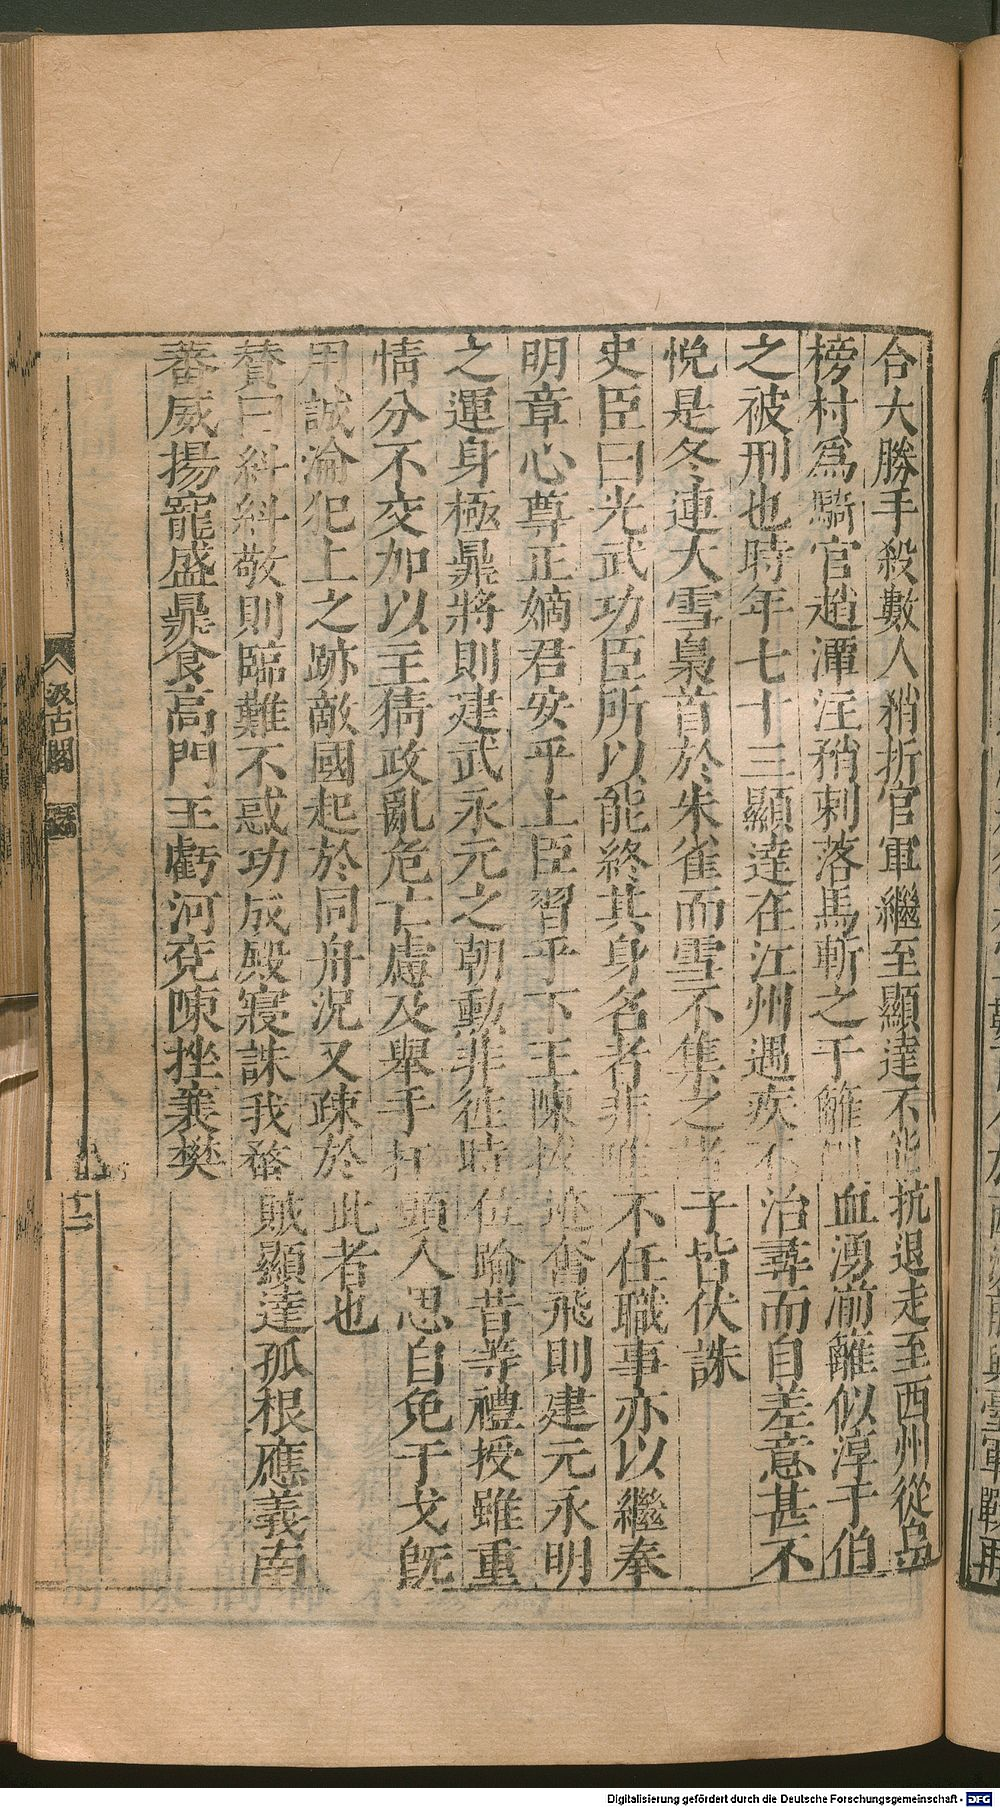 合大勝手殺數人矟折官軍繼至顯達不能抗退走至西州從烏
榜村爲騎官趙潭注矟刺落馬斬之于籬側血湧湔籬似淳于伯
之被刑也時年七十三顯達在江州遇疾不治尋而自差意甚不
悅是冬連大雪梟首於朱雀而雪不集之諸子皆伏誅
史臣曰光武功臣所以能終其身名者非唯不任職事亦以繼奉
明章心尊正嫡君安乎上臣習乎下王陳拔迹奮飛則建元永明
之運身極鼎將則建武永元之朝勳非往時位踰昔等禮授雖重
情分不交加以主猜政亂危亡慮及舉手扞頭人思自免干戈旣
用誠淪犯上之跡敵國起於同舟況又疎於此者也
贊曰糾糾敬則臨難不惑功成殿寢誅我蝥賊顯達孤根應義南
蕃威揚寵盛鼎食高門王虧河兗陳挫襄樊
汲古閣
十二
Digitalisierung gefördert durch die Deutsche Forschungsgemeinschaft - DFG